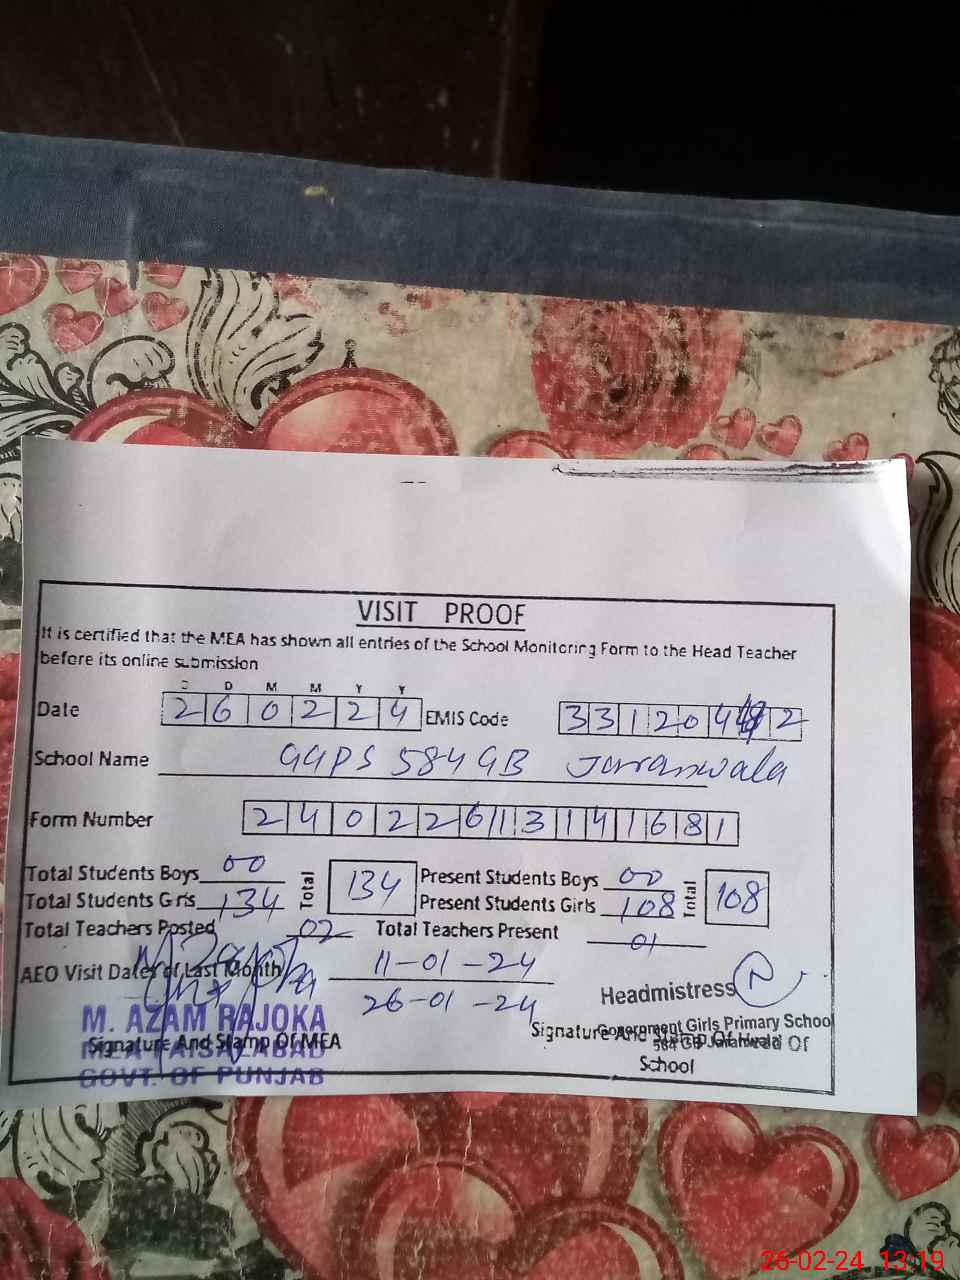 VISIT PROOF
It is certified that the MEA has shown all entries of the School Monitoring Form to the Head Teacher
before its online submission
D D M M Y Y
Date 2 6 0 2 2 4 EMIS Code 3 3 1 2 0 4 2
School Name GGPS 584 GB Jaranwala
Form Number 2 4 0 2 2 6 1 3 1 4 1 6 8 1
Total Students Boys 00 Total 134 Present Students Boys 00 Total 108
Total Students Girls 134 Present Students Girls 108
Total Teachers Posted 02 Total Teachers Present 01
AEO Visit Dates of Last Month 11-01-24
26-01-24
Headmistress
M. AZAM RAJOKA
Government Girls Primary School
Signature And Stamp Of MEA
Signature And Stamp Of Head Of
584 GB Jaranwala
MEA FAISALABAD
School
GOVT. OF PUNJAB
26-02-24 13:19